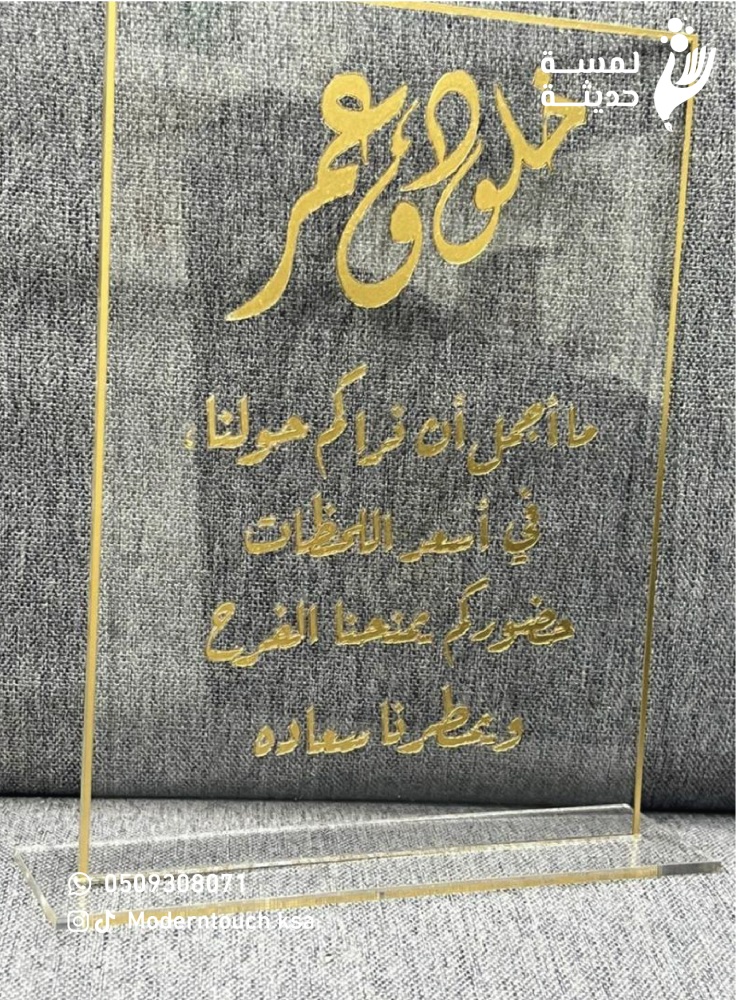 لمسة
حديثة
خلود و عمر
ما أجمل أن نراكم حولنا،
في أسعد اللحظات
حضوركم يمنحنا الفرح
ويمطرنا سعاده
0509308071
Moderntouch.ksa